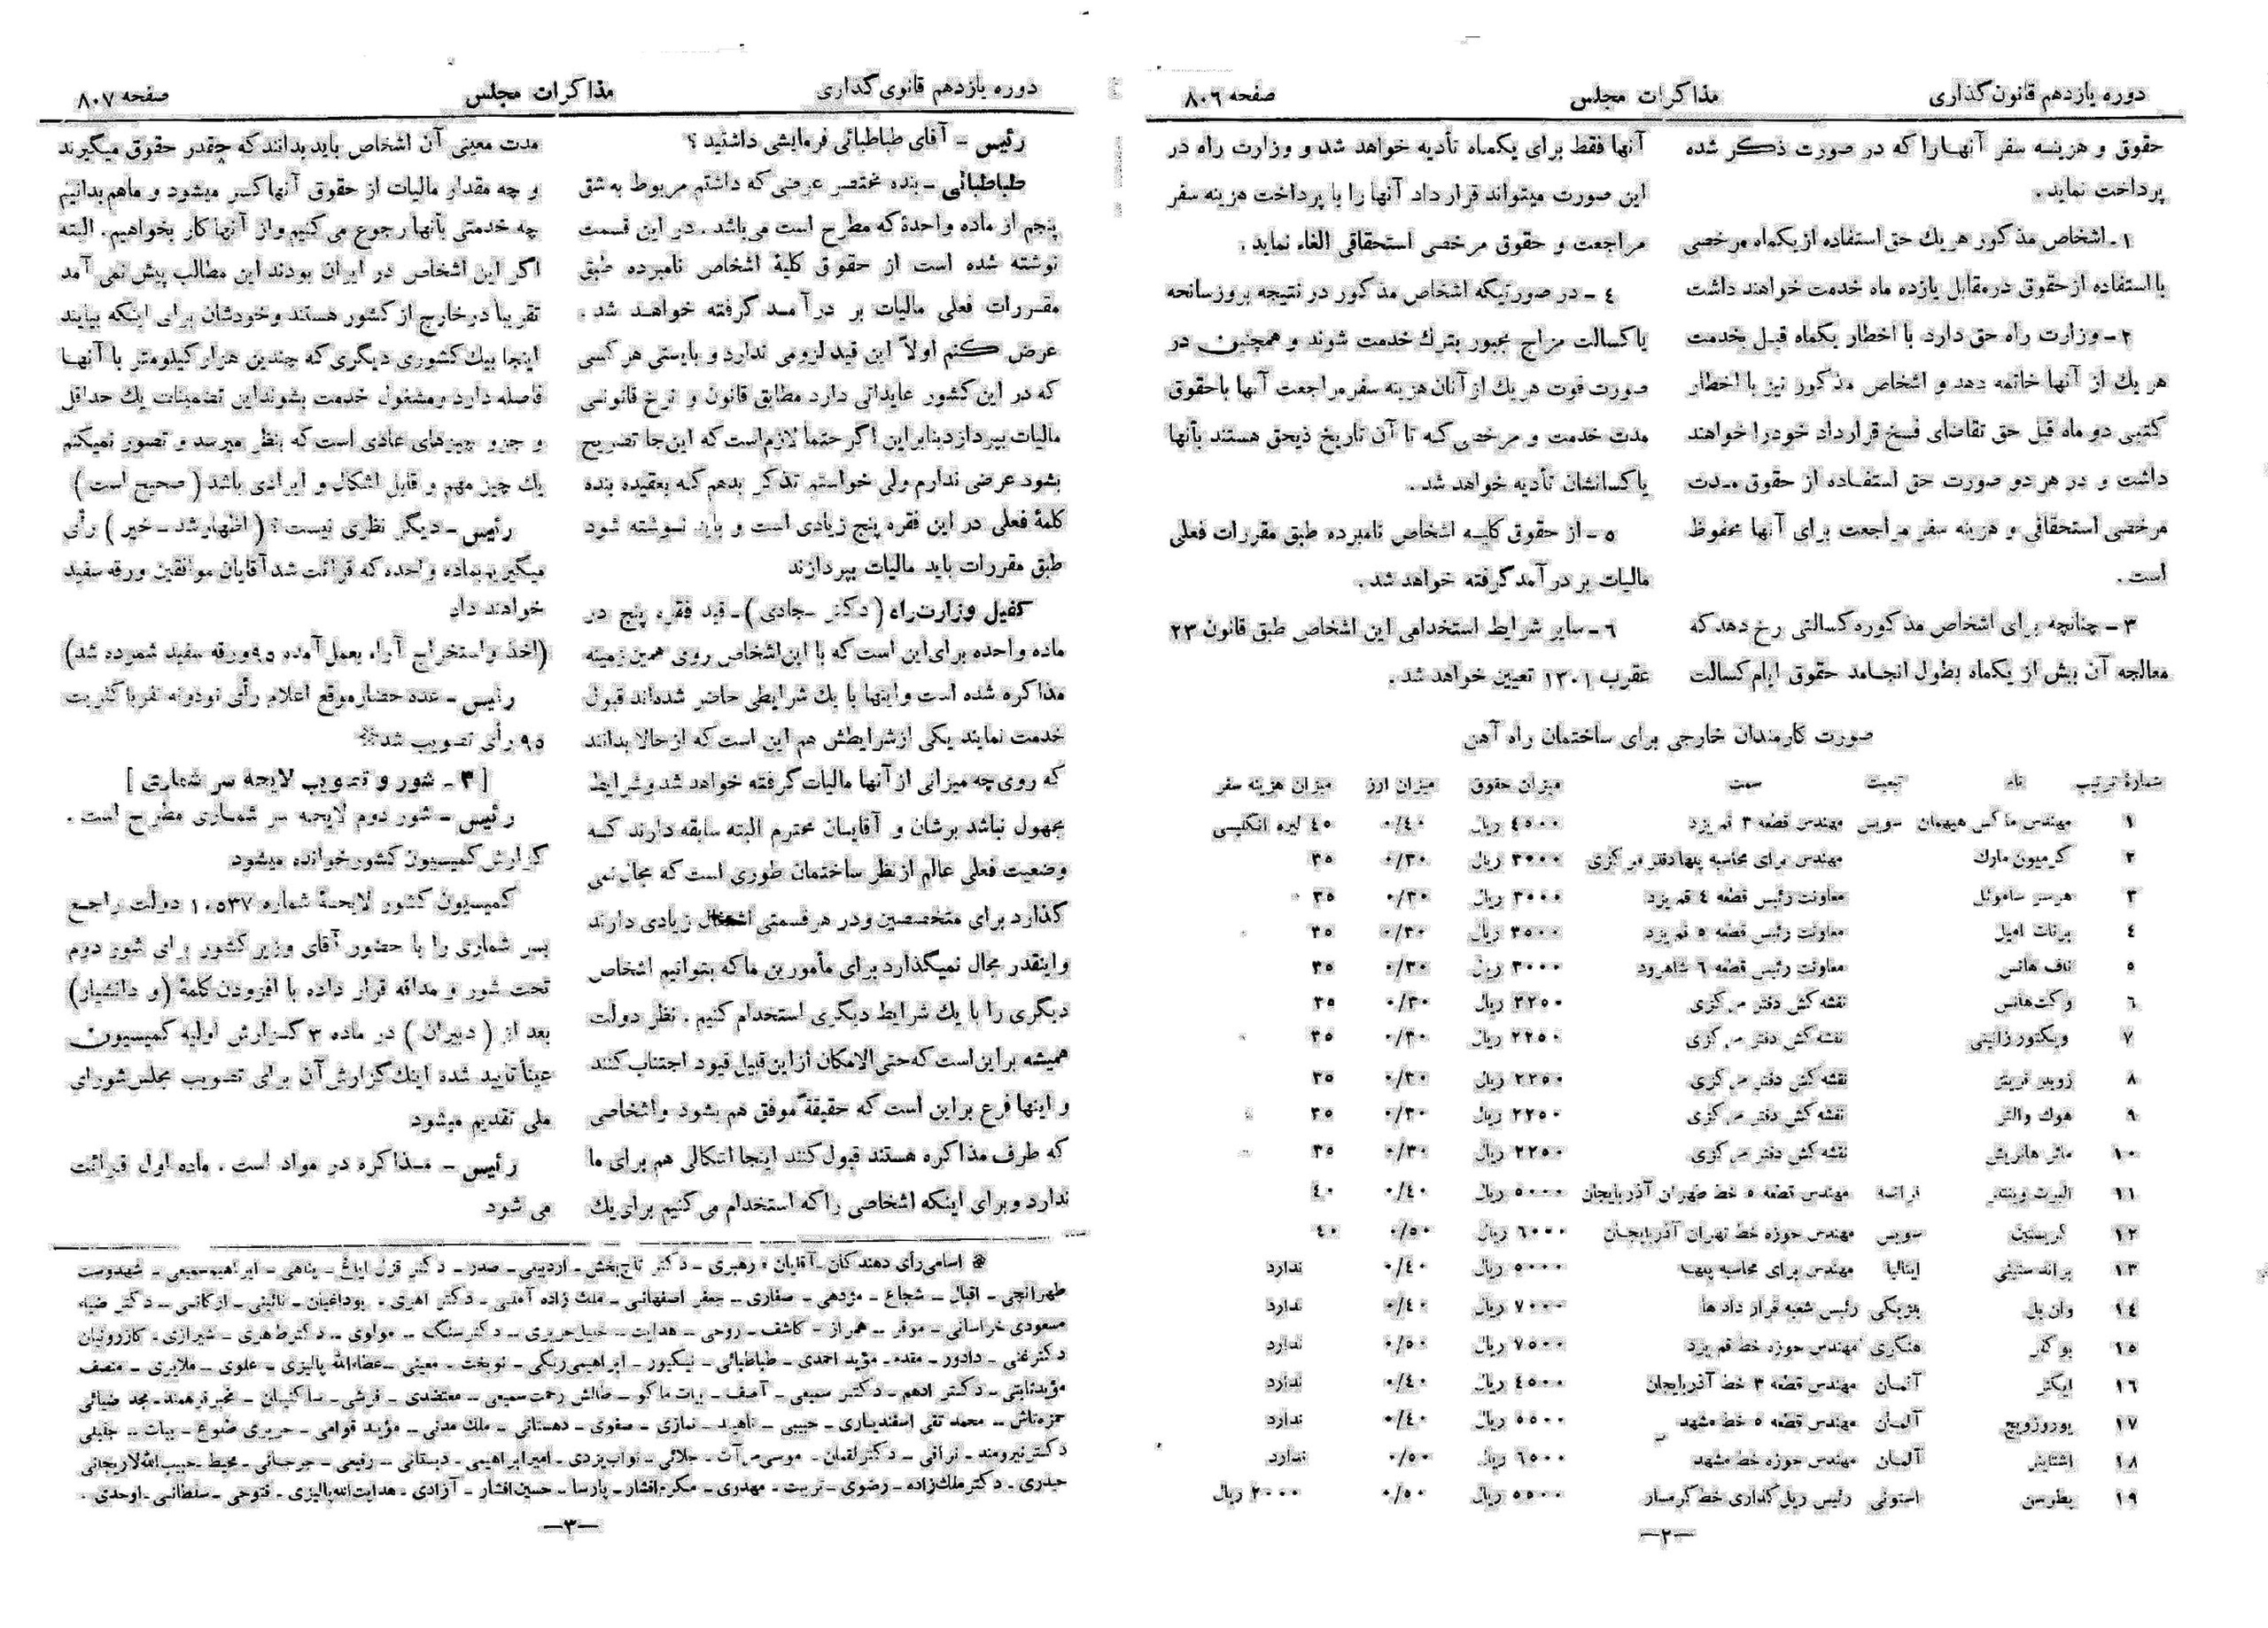 دوره یازدهم قانون گذاری
مذاکرات مجلس
صفحه ۸۰۶
حقوق و هزینه سفر آنها را که در صورت ذکر شده
پرداخت نماید.
۱ـ اشخاص مذکور هر یك حق استفاده از یکماه مرخصی
با استفاده از حقوق در مقابل یازده ماه خدمت خواهند داشت
۲ـ وزارت راه حق دارد با اخطار یکماه قبل بخدمت
هر یك از آنها خاتمه دهد و اشخاص مذکور نیز با اخطار
کتبی دو ماه قبل حق تقاضای فسخ قرارداد خود را خواهند
داشت و در هر دو صورت حق استفاده از حقوق مدت
مرخصی استحقاقی و هزینه سفر مراجعت برای آنها محفوظ
است.
۳ـ چنانچه برای اشخاص مذکوره کسالتی رخ دهد که
معالجه آن بیش از یکماه بطول انجامد حقوق ایام کسالت
آنها فقط برای یکماه تأدیه خواهد شد و وزارت راه در
این صورت میتواند قرارداد آنها را با پرداخت هزینه سفر
مراجعت و حقوق مرخصی استحقاقی الغاء نماید.
٤ ـ در صورتیکه اشخاص مذکور در نتیجه بروز سانحه
یا کسالت مزاج مجبور بترك خدمت شوند و همچنین در
صورت فوت هر یك از آنان هزینه سفر مراجعت آنها با حقوق
مدت خدمت و مرخصی که تا آن تاریخ ذیحق هستند بآنها
یا کسانشان تأدیه خواهد شد.
٥ ـ از حقوق کلیه اشخاص نامبرده طبق مقررات فعلی
مالیات بر درآمد گرفته خواهد شد.
٦ ـ سایر شرایط استخدامی این اشخاص طبق قانون ۲۳
عقرب ۱۳۰۱ تعیین خواهد شد.
صورت کارمندان خارجی برای ساختمان راه آهن
شمارهٔ ترتیب نام تبعیت سمت میزان حقوق میزان ارز میزان هزینه سفر
۱ مهندس ماکس هیهمان سویس مهندس قطعه ۳ قم یزد ٤٥۰۰ ریال ۰/٤۰ ٤٥ لیره انگلیسی
۲ کرمیون مارك مهندس برای محاسبه پلها دفتر مرکزی ۳۰۰۰ ریال ۰/۳۰ ۳٥
۳ هرسر ساموئل معاونت رئیس قطعه ٤ قم یزد ۳۰۰۰ ریال ۰/۳۰ ۳٥
٤ برنات امیل معاونت رئیس قطعه ٥ قم یزد ۳٥۰۰ ریال ۰/۳۰ ۳٥
٥ ناف هانس معاونت رئیس قطعه ٦ شاهرود ۳۰۰۰ ریال ۰/۳۰ ۳٥
٦ وکت هانس نقشه کش دفتر مرکزی ۲۲٥۰ ریال ۰/۳۰ ۳٥
۷ ویکتور زانیتی نقشه کش دفتر مرکزی ۲۲٥۰ ریال ۰/۳۰ ۳٥
۸ نقشه کش دفتر مرکزی ۲۲٥۰ ریال ۰/۳۰ ۳٥
۹ هوك والتر نقشه کش دفتر مرکزی ۲۲٥۰ ریال ۰/۳۰ ۳٥
۱۰ مائر هانریش نقشه کش دفتر مرکزی ۲۲٥۰ ریال ۰/۳۰ ۳٥
۱۱ البرت فرانسه مهندس قطعه ٥ خط طهران آذربایجان ٥۰۰۰ ریال ۰/٤۰ ٤۰
۱۲ کریستین سویس مهندس حوزه خط تهران آذربایجان ٦۰۰۰ ریال ۰/٥۰ ٤۰
۱۳ برانه ستینی ایتالیا مهندس برای محاسبه پلها ٥۰۰۰ ریال ۰/٤۰ ندارد
۱٤ وان بل بلژیکی رئیس شعبه قرار داد ها ۷۰۰۰ ریال ۰/٤۰ ندارد
۱٥ بوکر هنگری مهندس حوزه خط قم یزد ۷٥۰۰ ریال ۰/٥۰ ندارد
۱٦ ایگنر آلمان مهندس قطعه ۳ خط آذربایجان ٤٥۰۰ ریال ۰/٤۰ ندارد
۱۷ یوروزویچ آلمان مهندس قطعه ٥ خط مشهد ٥٥۰۰ ریال ۰/٤۰ ندارد
۱۸ اشتاینر آلمان مهندس حوزه خط مشهد ٦٥۰۰ ریال ۰/٥۰ ندارد
۱۹ پطرسن استونی رئیس ریل گذاری خط گرمسار ٥٥۰۰ ریال ۰/٥۰ ۲۰۰۰ ریال
—۲—
دوره یازدهم قانون گذاری
مذاکرات مجلس
صفحه ۸۰۷
رئیس ـ آقای طباطبائی فرمایشی داشتید؟
طباطبائی ـ بنده مختصر عرضی که داشتم مربوط به شق
پنجم از ماده واحدهٔ که مطرح است می باشد. در این قسمت
نوشته شده است از حقوق کلیهٔ اشخاص نامبرده طبق
مقررات فعلی مالیات بر درآمد گرفته خواهد شد.
عرض کنم اولاً این قید لزومی ندارد و بایستی هر کسی
که در این کشور عایداتی دارد مطابق قانون و نرخ قانونی
مالیات بپردازد بنابراین اگر حتماً لازم است که این جا تصریح
بشود عرضی ندارم ولی خواستم تذکر بدهم که بعقیده بنده
کلمهٔ فعلی در این فقره پنج زیادی است و باید نوشته شود
طبق مقررات باید مالیات بپردازند
کفیل وزارت راه (دکتر سجادی) ـ قید فقره پنج در
ماده واحده برای این است که با این اشخاص روی همین زمینه
مذاکره شده است و اینها با یك شرایطی حاضر شده اند قبول
خدمت نمایند یکی از شرایطش هم این است که از حالا بدانند
که روی چه میزانی از آنها مالیات گرفته خواهد شد و شرایط
مجهول نباشد برشان و آقایان محترم البته سابقه دارند که
وضعیت فعلی عالم از نظر ساختمان طوری است که مجال نمی
گذارد برای متخصصین و در هر قسمتی اشتغال زیادی دارند
و اینقدر مجال نمیگذارد برای مأمورین ما که بتوانیم اشخاص
دیگری را با یك شرایط دیگری استخدام کنیم. نظر دولت
همیشه بر این است که حتی الامکان از این قبیل قیود اجتناب کنند
و اینها فرع بر این است که حقیقةً موفق هم بشود و اشخاصی
که طرف مذاکره هستند قبول کنند اینجا اشکالی هم برای ما
ندارد و برای اینکه اشخاصی را که استخدام می کنیم برای یك
مدت معینی آن اشخاص باید بدانند که چقدر حقوق میگیرند
و چه مقدار مالیات از حقوق آنها کسر میشود و ماهم بدانیم
چه خدمتی بآنها رجوع می کنیم و از آنها کار بخواهیم. البته
اگر این اشخاص در ایران بودند این مطالب پیش نمی آمد
تقریباً در خارج از کشور هستند و خودشان برای اینکه بیایند
اینجا بیك کشوری دیگری که چندین هزار کیلومتر با آنها
فاصله دارد و مشغول خدمت بشوند این تضمینات یك حداقل
و جزو چیزهای عادی است که بنظر میرسد و تصور نمیکنم
یك چیز مهم و قابل اشکال و ایرادی باشد (صحیح است)
رئیس ـ دیگر نظری نیست؟ (اظهار شد ـ خیر) رأی
میگیریم بماده واحده که قرائت شد آقایان موافقین ورقه سفید
خواهند داد
(اخذ و استخراج آراء بعمل آمده ۹٥ ورقه سفید شمرده شد)
رئیس ـ عده حضار موقع اعلام رأی نود و نه نفر با کثریت
۹٥ رأی تصویب شد※
[۳ ـ شور و تصویب لایحه سر شماری]
رئیس ـ شور دوم لایحه سر شماری مطرح است.
گزارش کمیسیون کشور خوانده میشود
کمیسیون کشور لایحهٔ شماره ۱۰٥۳۷ دولت راجع
بسر شماری را با حضور آقای وزیر کشور برای شور دوم
تحت شور و مداقه قرار داده با افزودن کلمهٔ (و دانشیار)
بعد از (دبیران) در ماده ۳ گزارش اولیه کمیسیون
عیناً تأیید شده اینك گزارش آن برای تصویب مجلس شورای
ملی تقدیم میشود
رئیس ـ مذاکره در مواد است. ماده اول قرائت
می شود
※ اسامی رأی دهندگان ـ آقایان: رهبری ـ دکتر تاج بخش ـ اردبیلی ـ صدر ـ دکتر قزل ایاغ ـ پناهی ـ ابراهیم سمیعی ـ شهدوست
طهرانچی ـ اقبال ـ شجاع ـ مژدهی ـ صفاری ـ جعفر اصفهانی ـ ملك زاده آملی ـ دکتر اهری ـ بوداغیان ـ نائینی ـ ارکانی ـ دکتر ضیاء
مسعودی خراسانی ـ موقر ـ همراز ـ کاشف ـ روحی ـ هدایت ـ خلیل حریری ـ دکتر سنگ ـ مولوی ـ دکتر طاهری ـ شیرازی ـ کازرونیان
دکتر غنی ـ دادور ـ مقدم ـ مؤید احمدی ـ طباطبائی ـ نیکپور ـ ابراهیمی ریگی ـ نوبخت ـ معینی ـ عطاءالله پالیزی ـ علوی ـ ملایری ـ منصف
مؤید ثابتی ـ دکتر ادهم ـ دکتر سمیعی ـ آصف ـ بیات ماکو ـ طالش رحمت سمیعی ـ معتضدی ـ فرشی ـ ساکنیان ـ مخبر فرهمند ـ مجد ضیائی
حمزه تاش ـ محمد تقی اسفندیاری ـ حبیبی ـ ناهید ـ نمازی ـ صفوی ـ دهستانی ـ ملك مدنی ـ مؤید قوامی ـ حریری ـ بیات ـ جلیلی
دکتر نیرومند ـ نراقی ـ دکتر لقمان ـ موسی مرآت ـ جلائی ـ نواب یزدی ـ امیر ابراهیمی ـ دبستانی ـ رفیعی ـ جرجانی ـ محیط ـ حبیب الله لاریجانی
حیدری ـ دکتر ملك زاده ـ رضوی ـ تربیت ـ مهدوی ـ مکرم افشار ـ پارسا ـ حسین افشار ـ آزادی ـ هدایت الله پالیزی ـ فتوحی ـ سلطانی ـ اوحدی.
—۳—